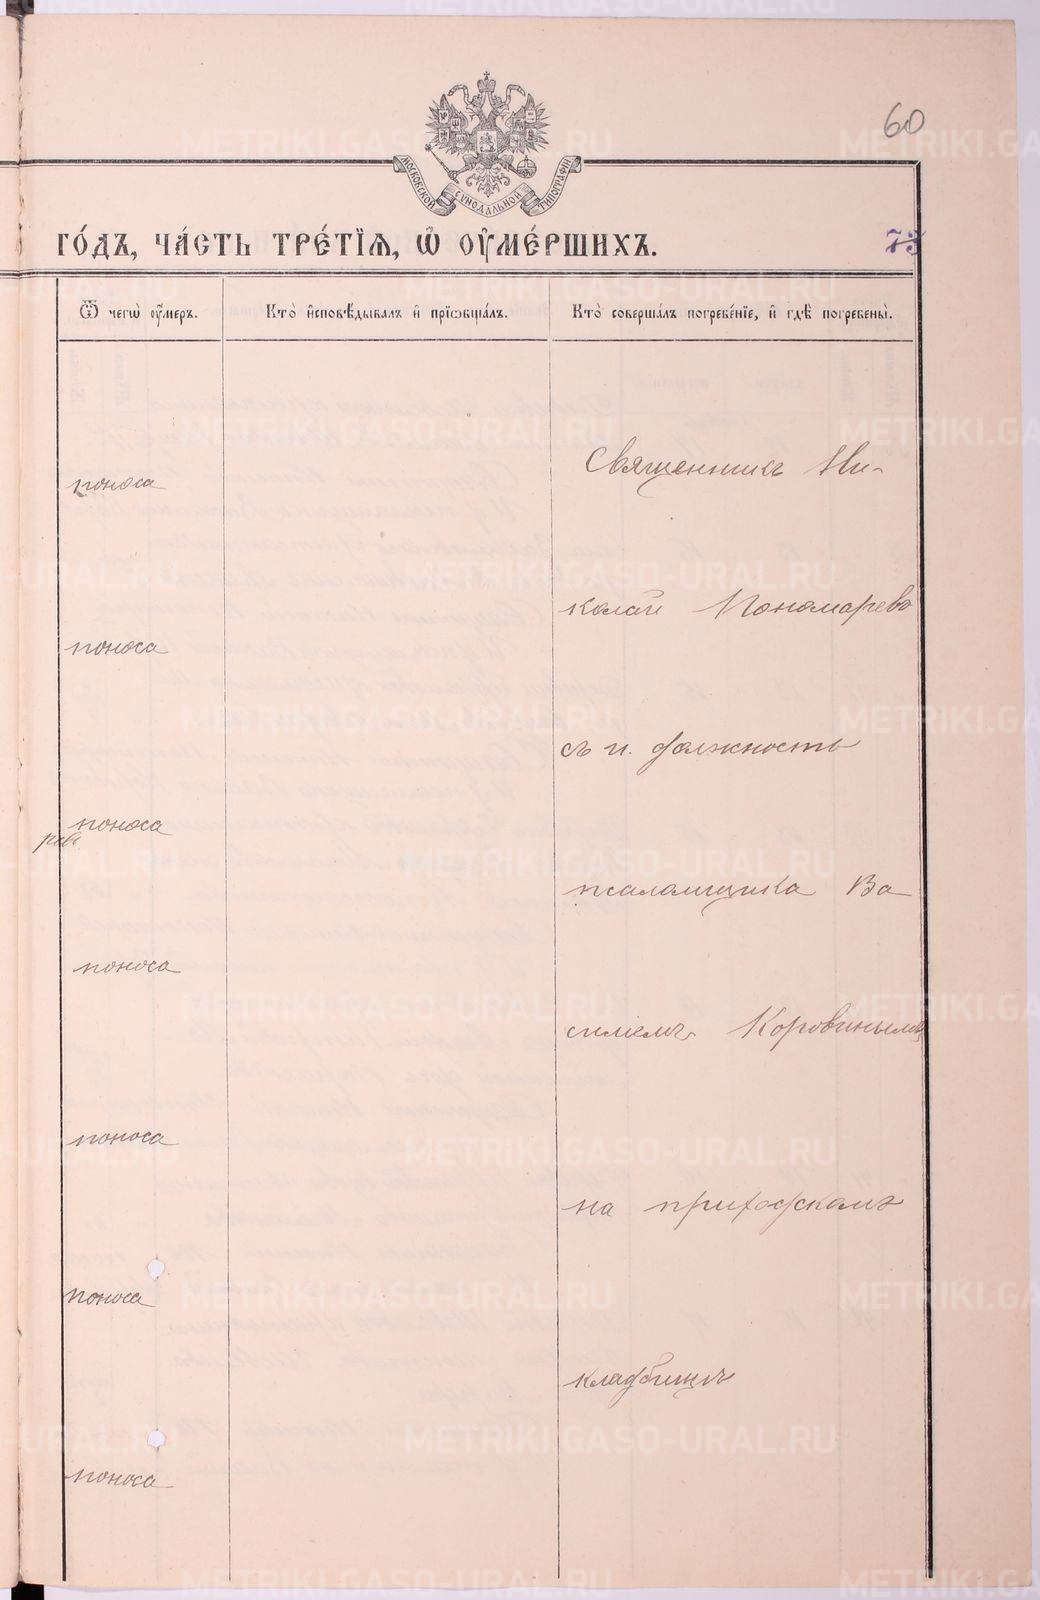 60
МОСКОВСКОЙ СѴНОДАЛЬНОЙ ТИПОГРАФІИ
ГО́ДЪ, ЧА́СТЬ ТРЕ́ТІѦ, Ѡ҆ ОУ҆МЕ́РШИХЪ.
73
Ѿ чегѡ̀ оу҆́меръ.
Кто̀ и҆сповѣ́дывалъ и҆ прїѡбща́лъ.
Кто̀ соверша́лъ погребе́нїе, и҆ гдѣ̀ погребены̀.
Священникъ Ни-
поноса
колай Пономаревъ
поноса
съ и. должность
поноса
псаломщика Ва
поноса
силіемъ Коровинымъ
поноса
на приходскомъ
поноса
кладбищѣ
поноса
METRIKI.GASO-URAL.RU